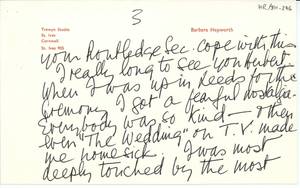 HR/AM-246
3
Trewyn Studio
St. Ives
Cornwall
St. Ives
Barbara Hepworth
your Routledge Sec. cope with this
I really long to see you Herbert
When I was up in Leeds for the
ceremony I got a fearful nostalgia -
Everybody was so kind – & then
even "The Wedding" on T.V. made
me homesick. I was most
deeply touched by the most